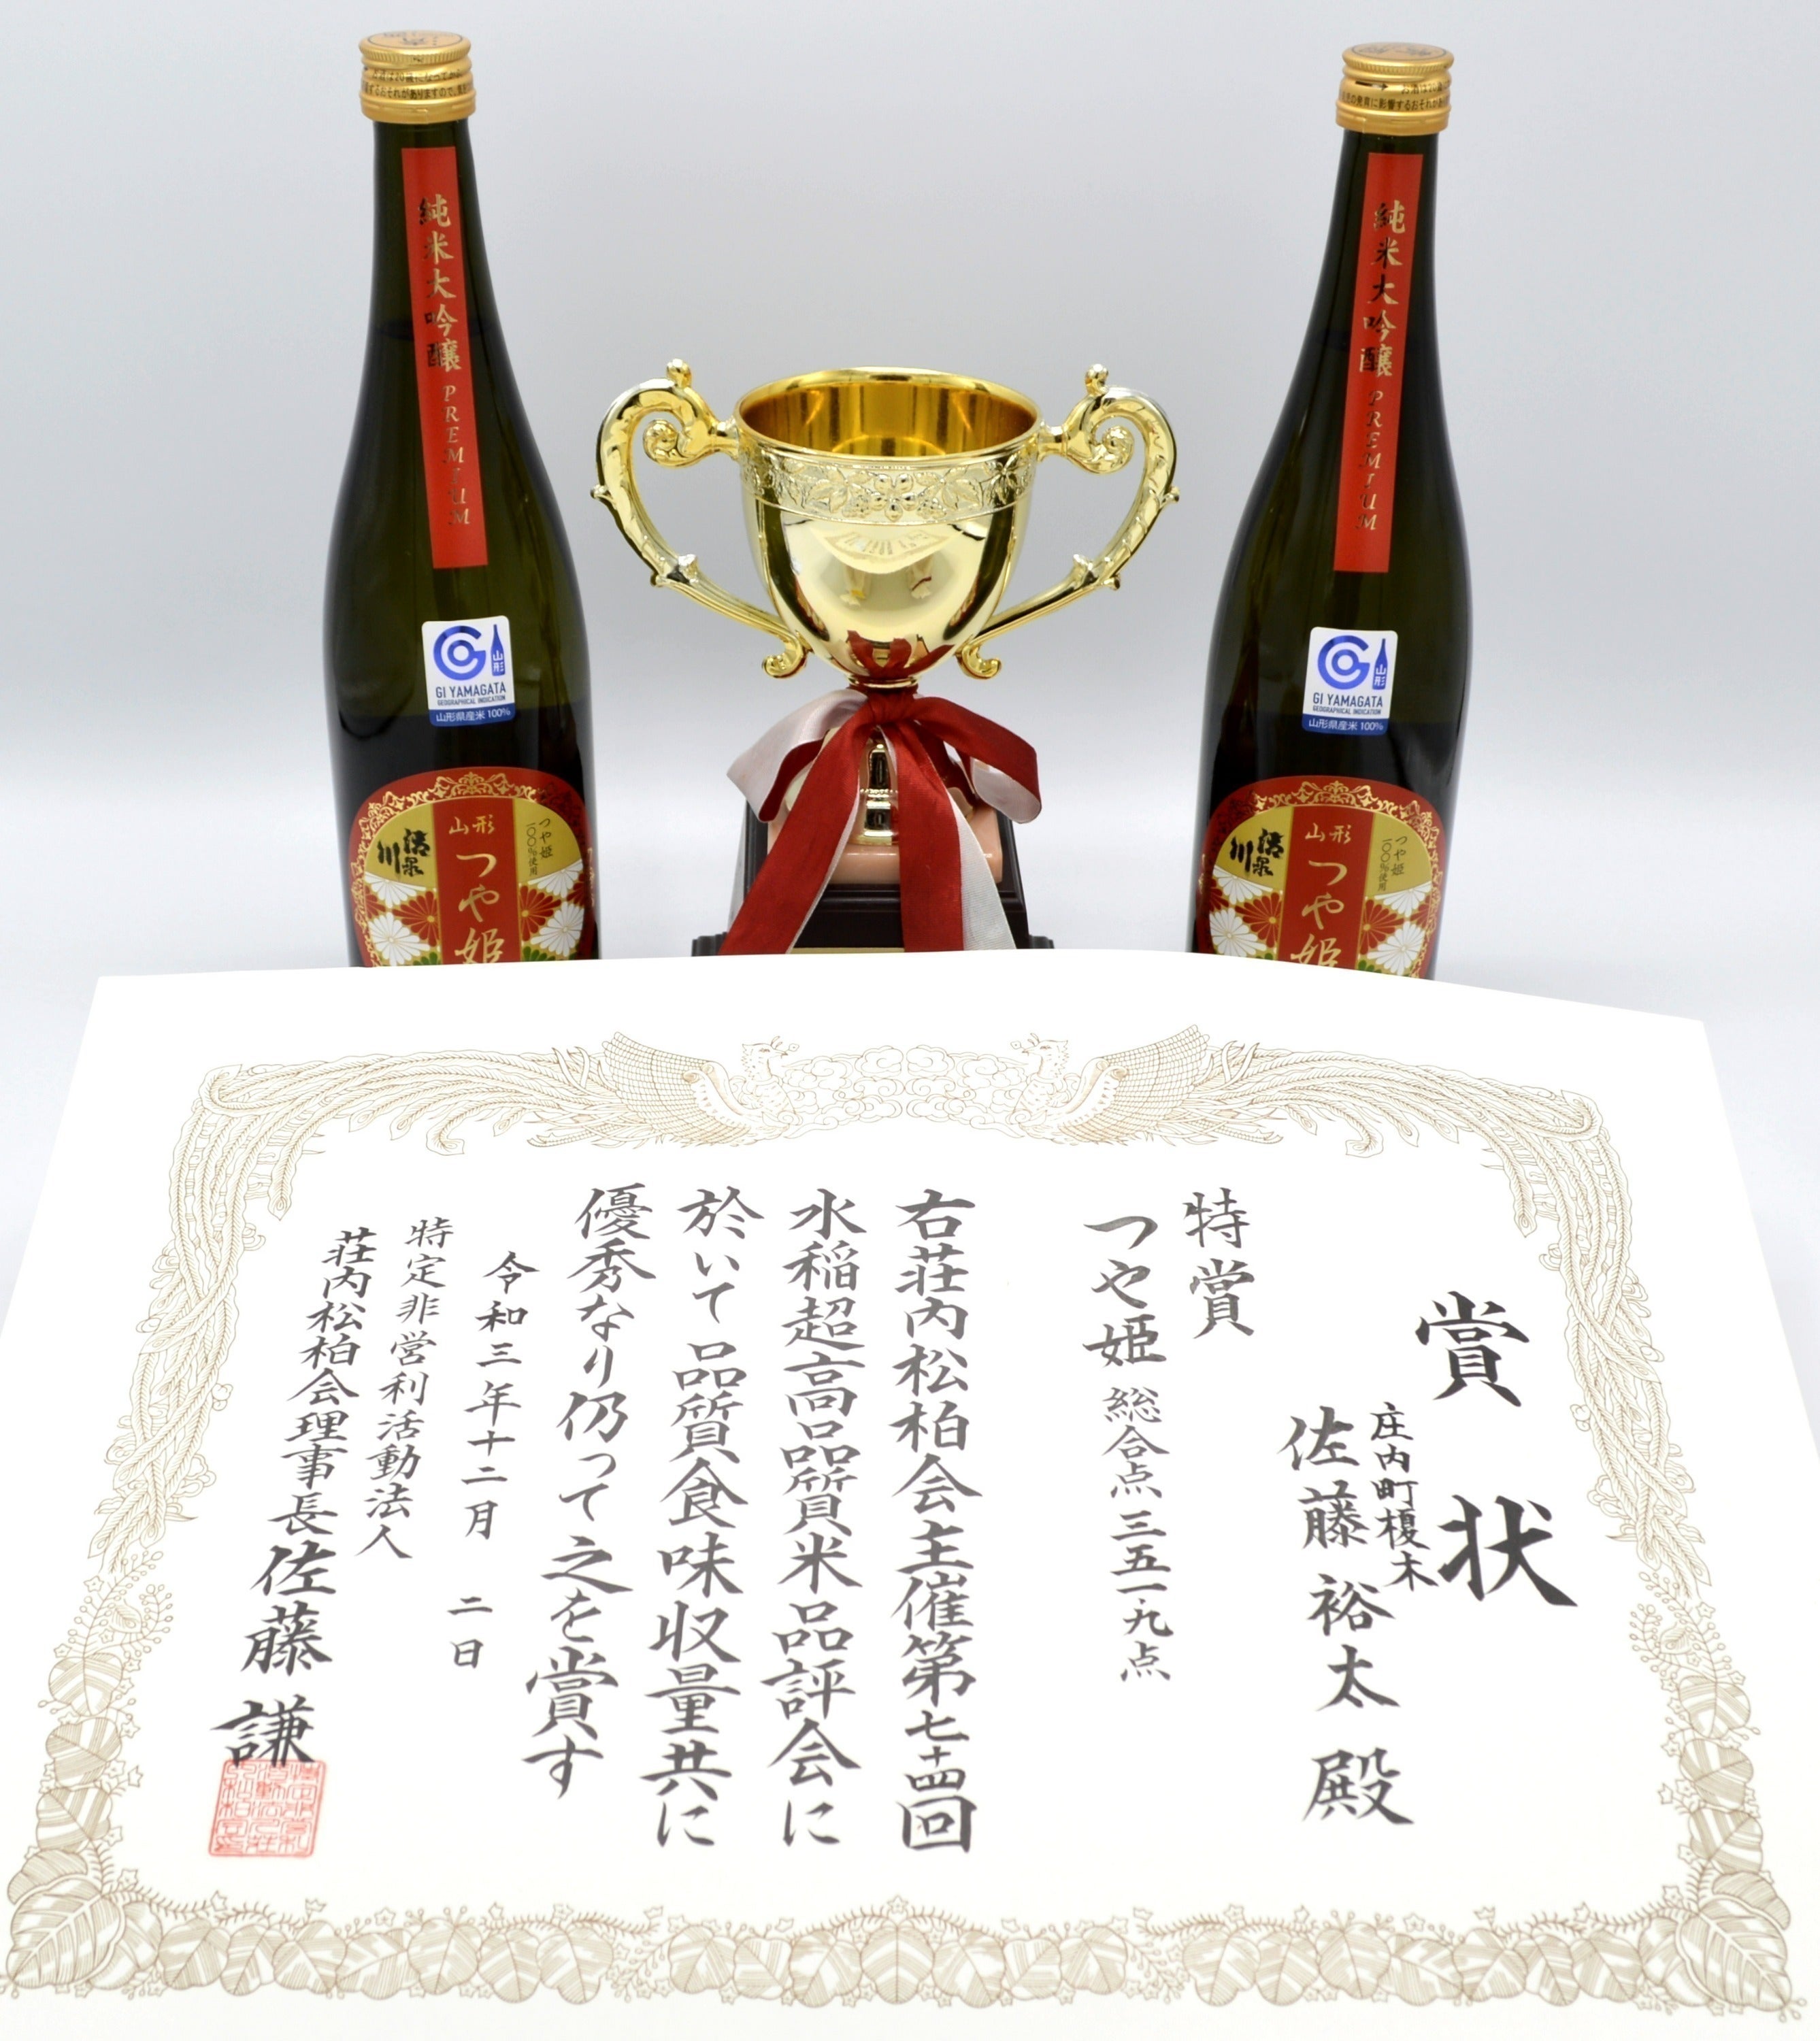 純米大吟醸 PREMIUM
GI YAMAGATA
GEOGRAPHICAL INDICATION
山形
山形県産米100%
山形
つや姫
つや姫
一〇〇%使用
純米大吟醸 PREMIUM
GI YAMAGATA
GEOGRAPHICAL INDICATION
山形
山形県産米100%
山形
つや姫
つや姫
一〇〇%使用
賞状
庄内町榎木
佐藤裕太殿
特賞
つや姫 総合点三五一・九点
右荘内松柏会主催第七十四回
水稲超高品質米品評会に
於いて品質食味収量共に
優秀なり仍って之を賞す
令和三年十二月 二日
特定非営利活動法人
荘内松柏会理事長佐藤 謙